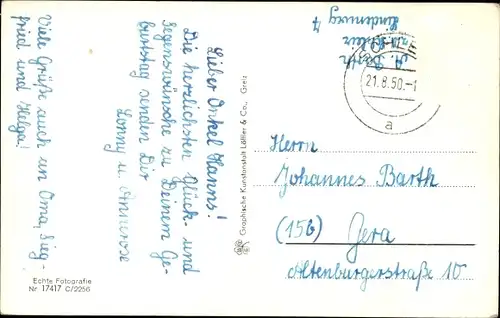 Lieber Onkel Hanns!
Die herzlichsten Glück- und
Segenswünsche zu Deinem Ge-
burtstag senden Dir
Lonny u. Annerose
Viele Grüße auch an Oma, Sieg-
fried und Helga!
Echte Fotografie
Nr 17417 C/2256
Graphische Kunstanstalt Löffler & Co., Greiz
A. Barth
Lindenweg 7
21.8.50.-1
a
Herrn
Johannes Barth
(15b) Gera
Altenburgerstraße 10